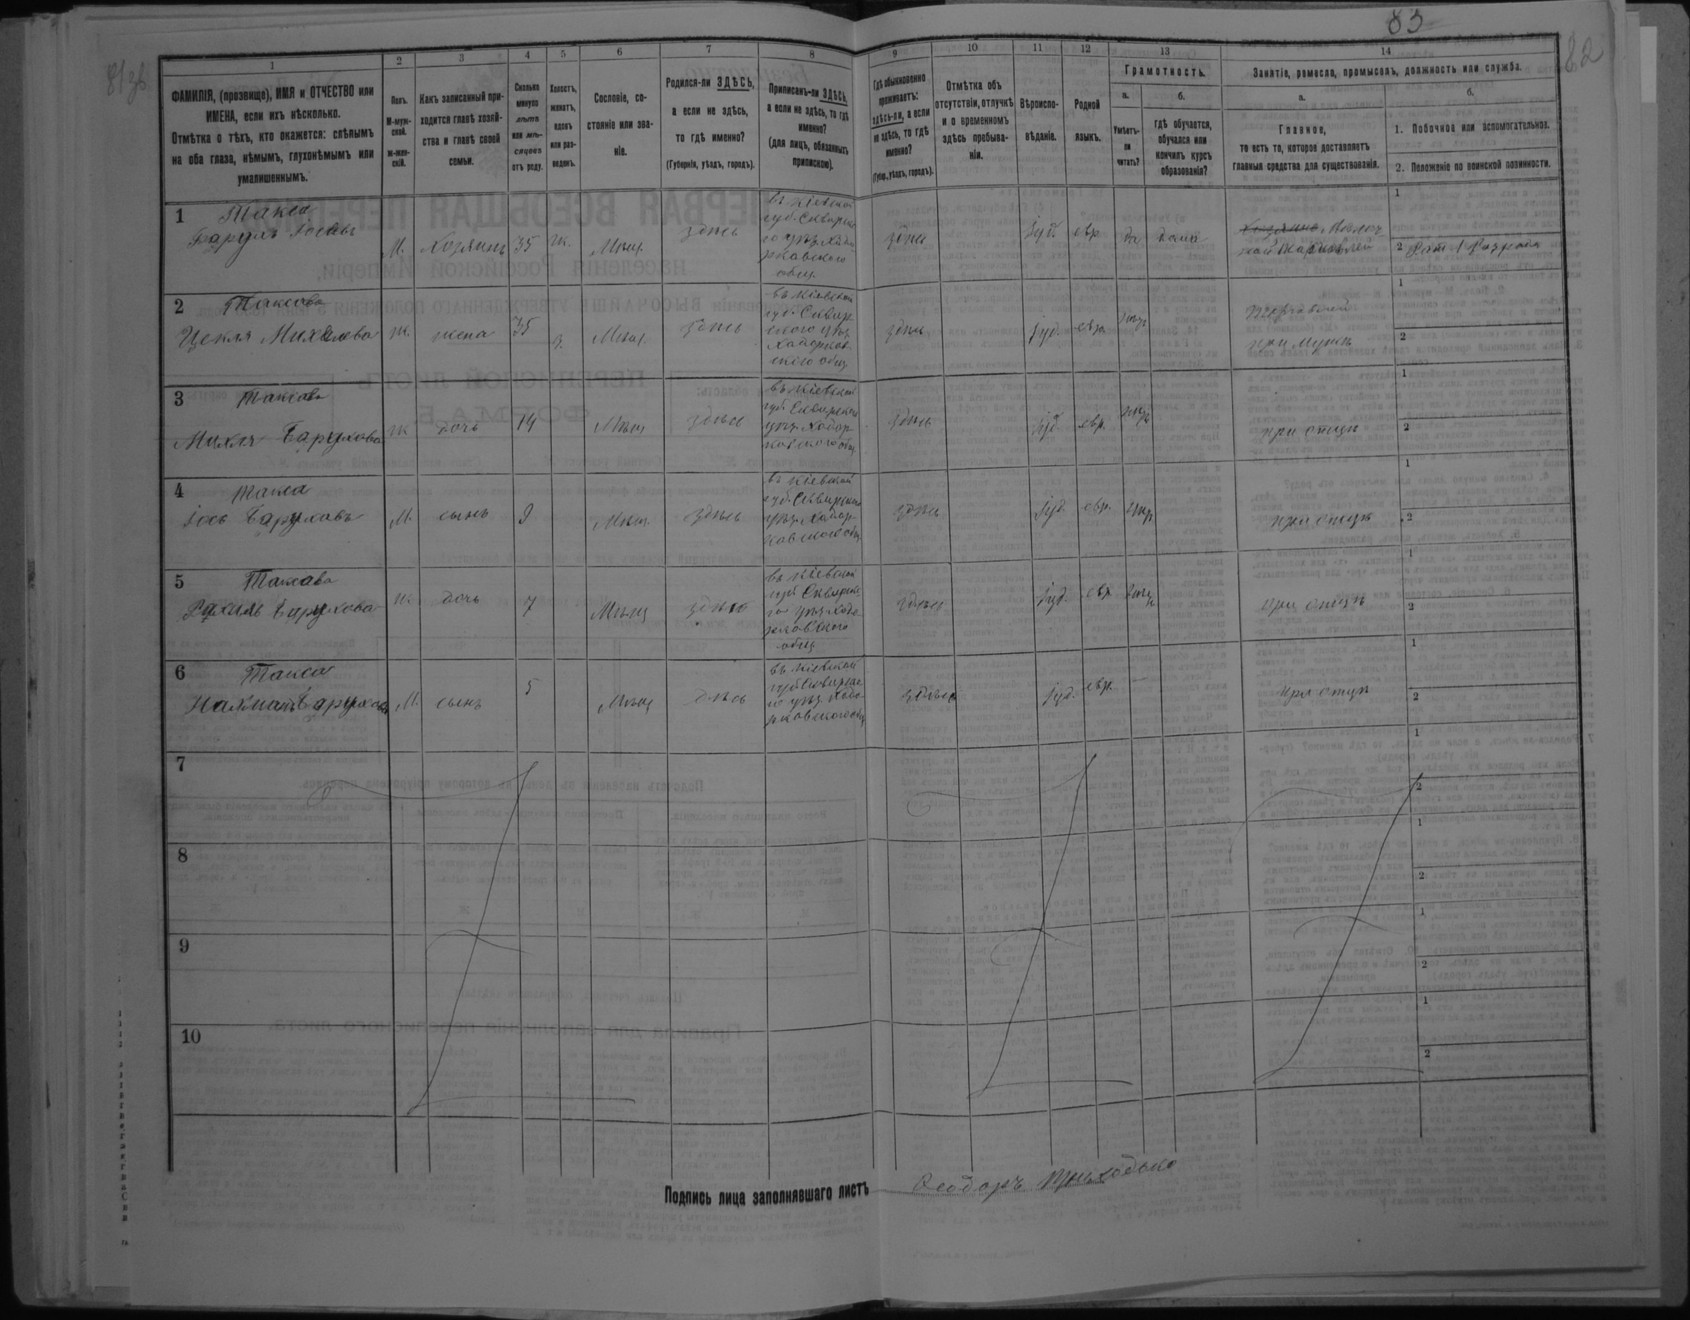 83
82
1
2
3
4
5
6
7
8
9
10
11
12
13
14
ФАМИЛІЯ, (прозвище), ИМЯ и ОТЧЕСТВО или
ИМЕНА, если ихъ нѣсколько.
Отмѣтка о тѣхъ, кто окажется: слѣпымъ
на оба глаза, нѣмымъ, глухонѣмымъ или
умалишеннымъ.
Полъ.
М-муж-
ской.
Ж-жен-
скій.
Какъ записанный при-
ходится главѣ хозяй-
ства и главѣ своей
семьи.
Сколько
минуло
лѣтъ
или мѣ-
сяцевъ
отъ роду.
Холостъ,
женатъ,
вдовъ
или раз-
веденъ.
Сословіе, со-
стояніе или зва-
ніе.
Родился-ли ЗДѢСЬ,
а если не здѣсь,
то гдѣ именно?
(Губернія, уѣздъ, городъ).
Приписанъ-ли ЗДѢСЬ,
а если не здѣсь, то гдѣ
именно?
(для лицъ, обязанныхъ
припискою).
Гдѣ обыкновенно
проживаетъ:
здѣсь-ли, а если
не здѣсь, то гдѣ
именно?
(Губер., уѣздъ, городъ).
Отмѣтка объ
отсутствіи, отлучкѣ
и о временномъ
здѣсь пребыва-
ніи.
Вѣроиспо-
вѣданіе.
Родной
языкъ.
Грамотность.
а.
Умѣетъ-
ли
читать?
б.
гдѣ обучается,
обучался или
кончилъ курсъ
образованія?
Занятіе, ремесло, промыселъ, должность или служба.
а.
Главное,
то есть то, которое доставляетъ
главныя средства для существованія.
б.
1. Побочное или вспомогательное.
2. Положеніе по воинской повинности.
1
Такса
Барухъ Іосевъ
М. Хозяинъ 35 ж. Мѣщ. здѣсь
въ Кіевской
губ. Сквирско
го уѣз. Ходо
рковского
общ.
здѣсь іуд. евр. да дома
1
2
2
Таксова
Цекля Михелова ж. жена 35 з. Мѣщ. здѣсь
въ Кіевской
губ. Сквир
ского уѣз.
Ходорков
ского общ.
здѣсь іуд. евр. нѣтъ
при мужѣ
1
2
3
Таксова
Михля Барухова ж дочь 14 Мѣщ здѣсь
въ Кіевской
губ. Сквирской
уѣз. Ходор
ковского общ
здѣсь іуд. евр. нѣтъ при отцѣ
1
2
4
Такса
Іось Баруховъ М. сынъ 9 Мѣщ. здѣсь
въ Кіевской
губ. Сквирской
уѣз. Ходор
ковского общ
здѣсь іуд. евр. нѣтъ при отцѣ
1
2
5
Таксова
Рахиль Барухова ж. дочь 7 Мѣщ здѣсь
въ Кіевской
губ. Сквирско
го уѣз. Ходо
рковского
общ
здѣсь іуд. евр нѣтъ при отцѣ
1
2
6
Такса
Нахманъ Баруховъ М. сынъ 5 Мѣщ здѣсь
въ Кіевской
губ Сквирско
го уѣз. Ходо
рковского общ
здѣсь іуд. евр. — при отцѣ
1
2
7
1
2
8
1
2
9
1
2
10
1
2
Подпись лица заполнявшаго листъ Ѳеодоръ Приходько